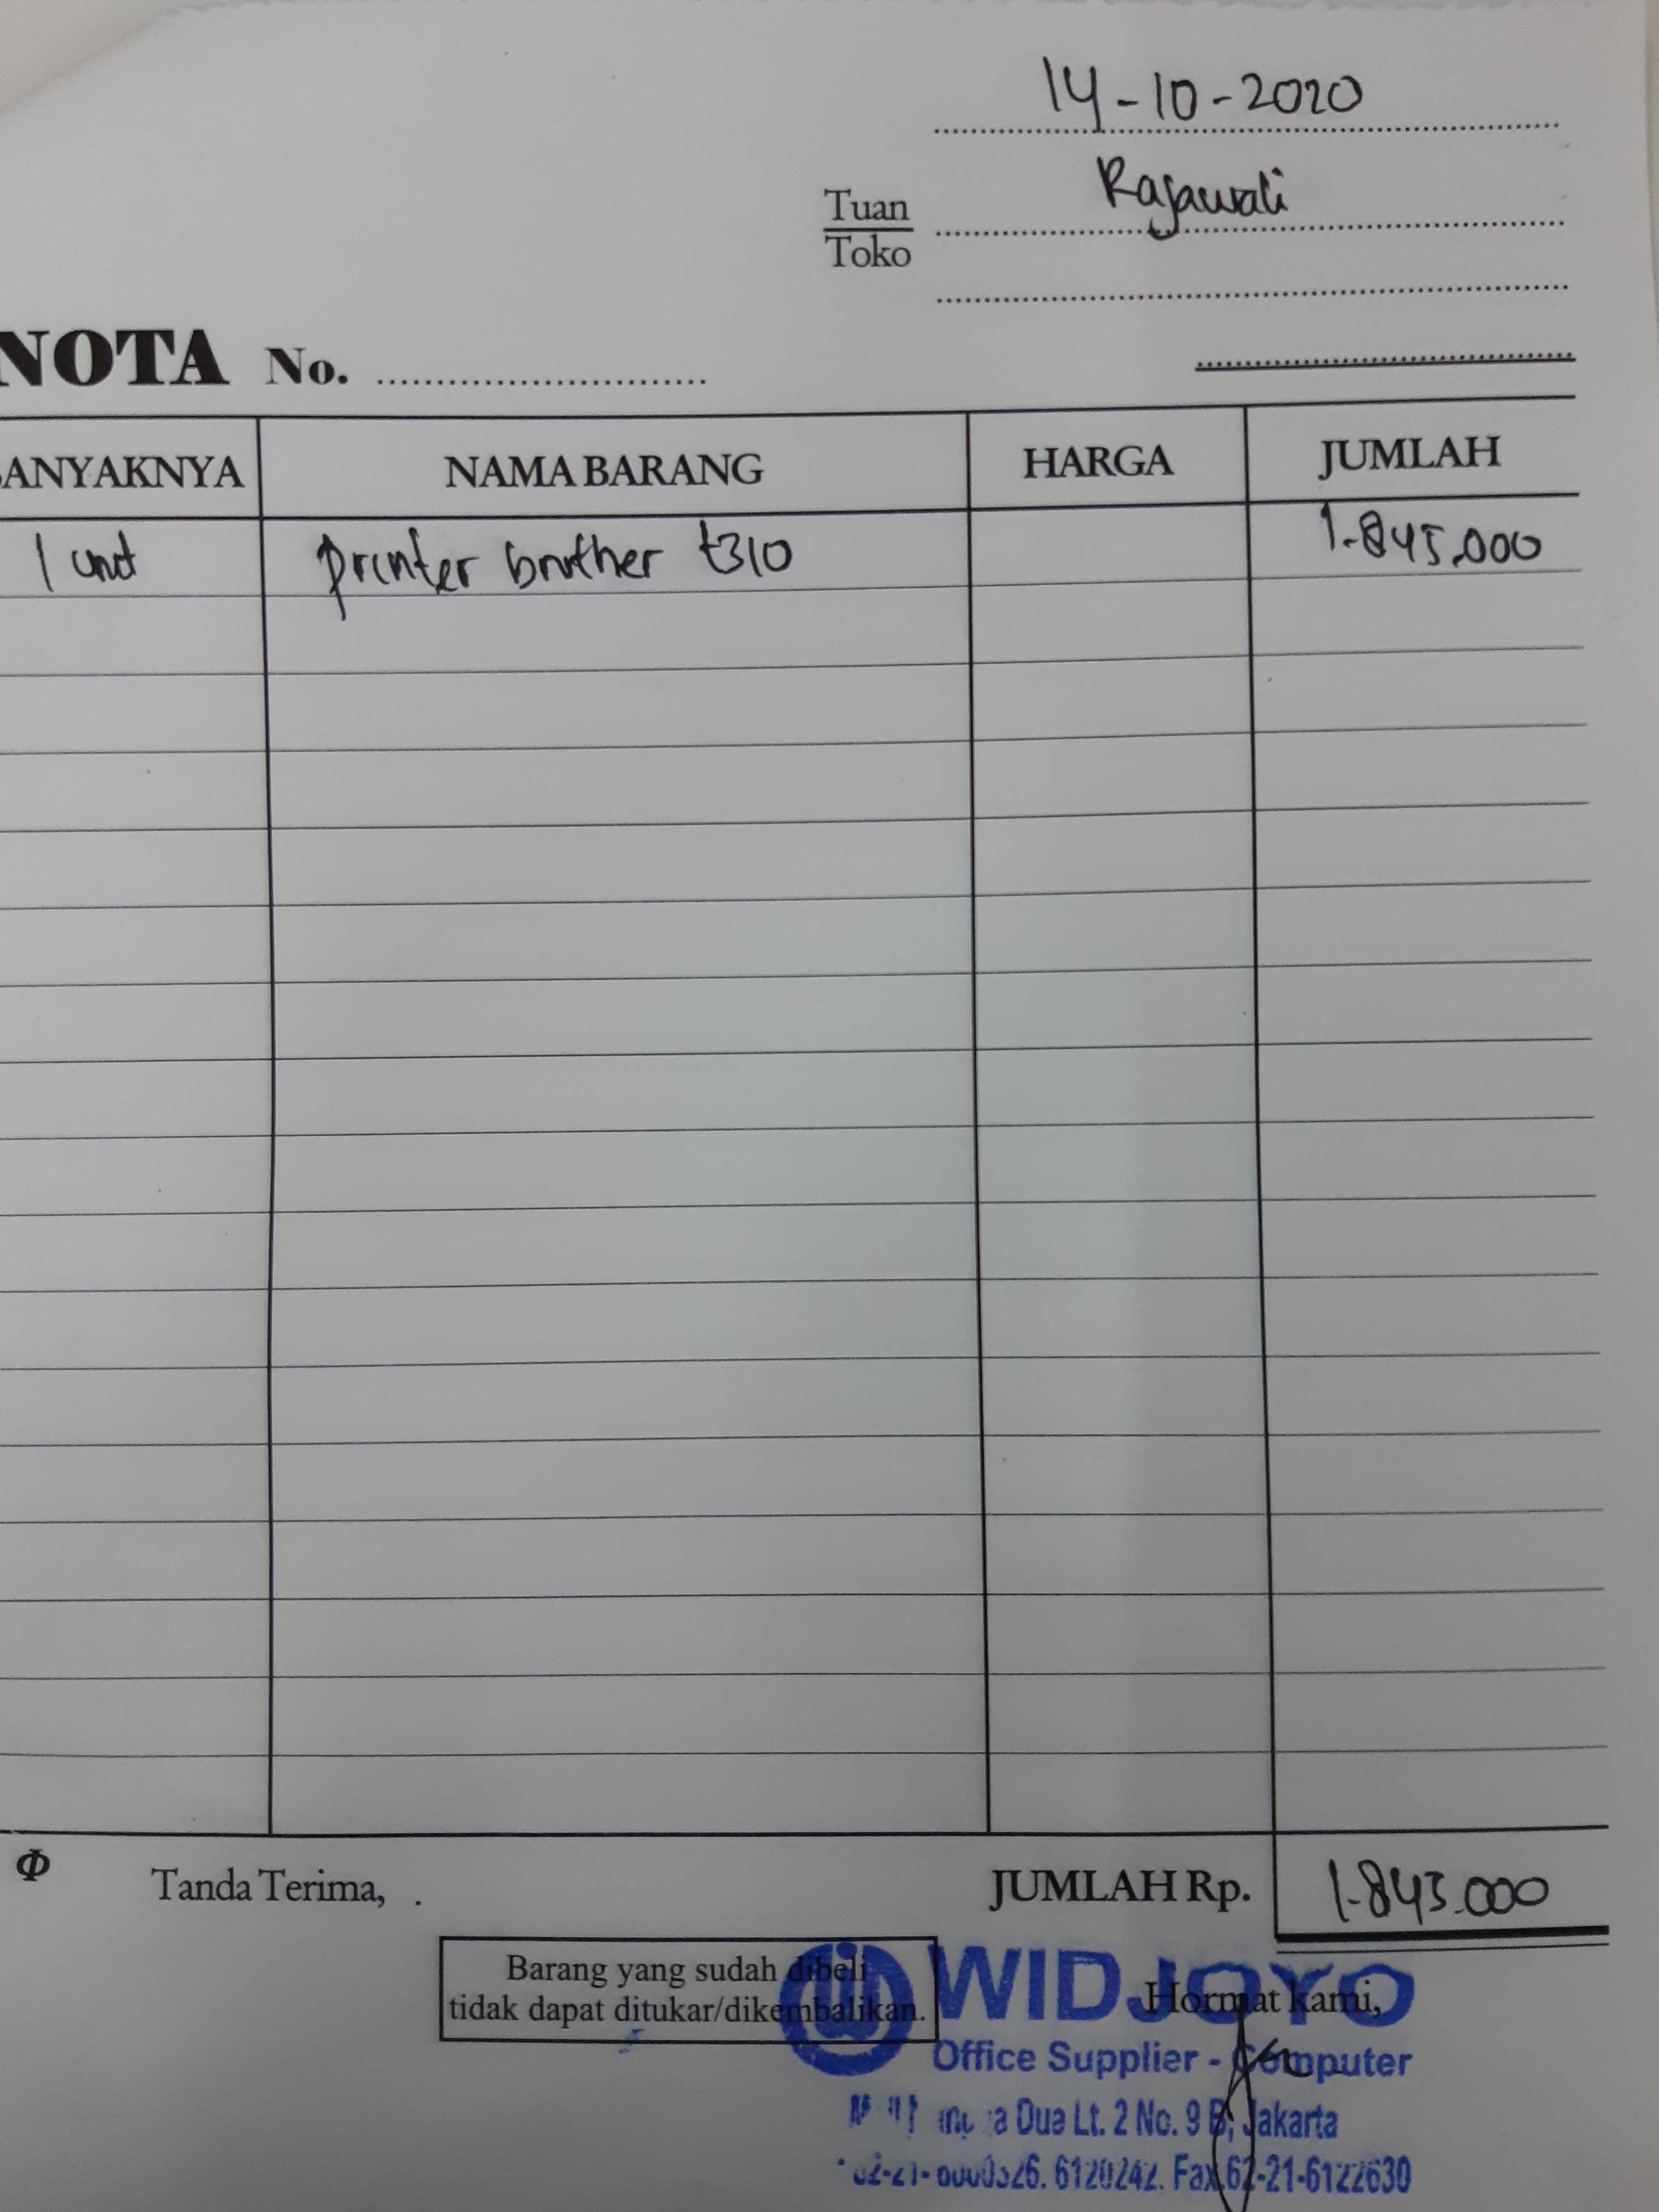 14-10-2020
Tuan Rajawali
Toko
NOTA No.
BANYAKNYA NAMA BARANG HARGA JUMLAH
1 unit printer brother t310 1.845.000
Tanda Terima, JUMLAH Rp. 1.845.000
Barang yang sudah dibeli
tidak dapat ditukar/dikembalikan.
WIDJOYO
Hormat kami,
Office Supplier - Computer
Dua Lt. 2 No. 9 B, Jakarta
6120242. Fax 62-21-6122630